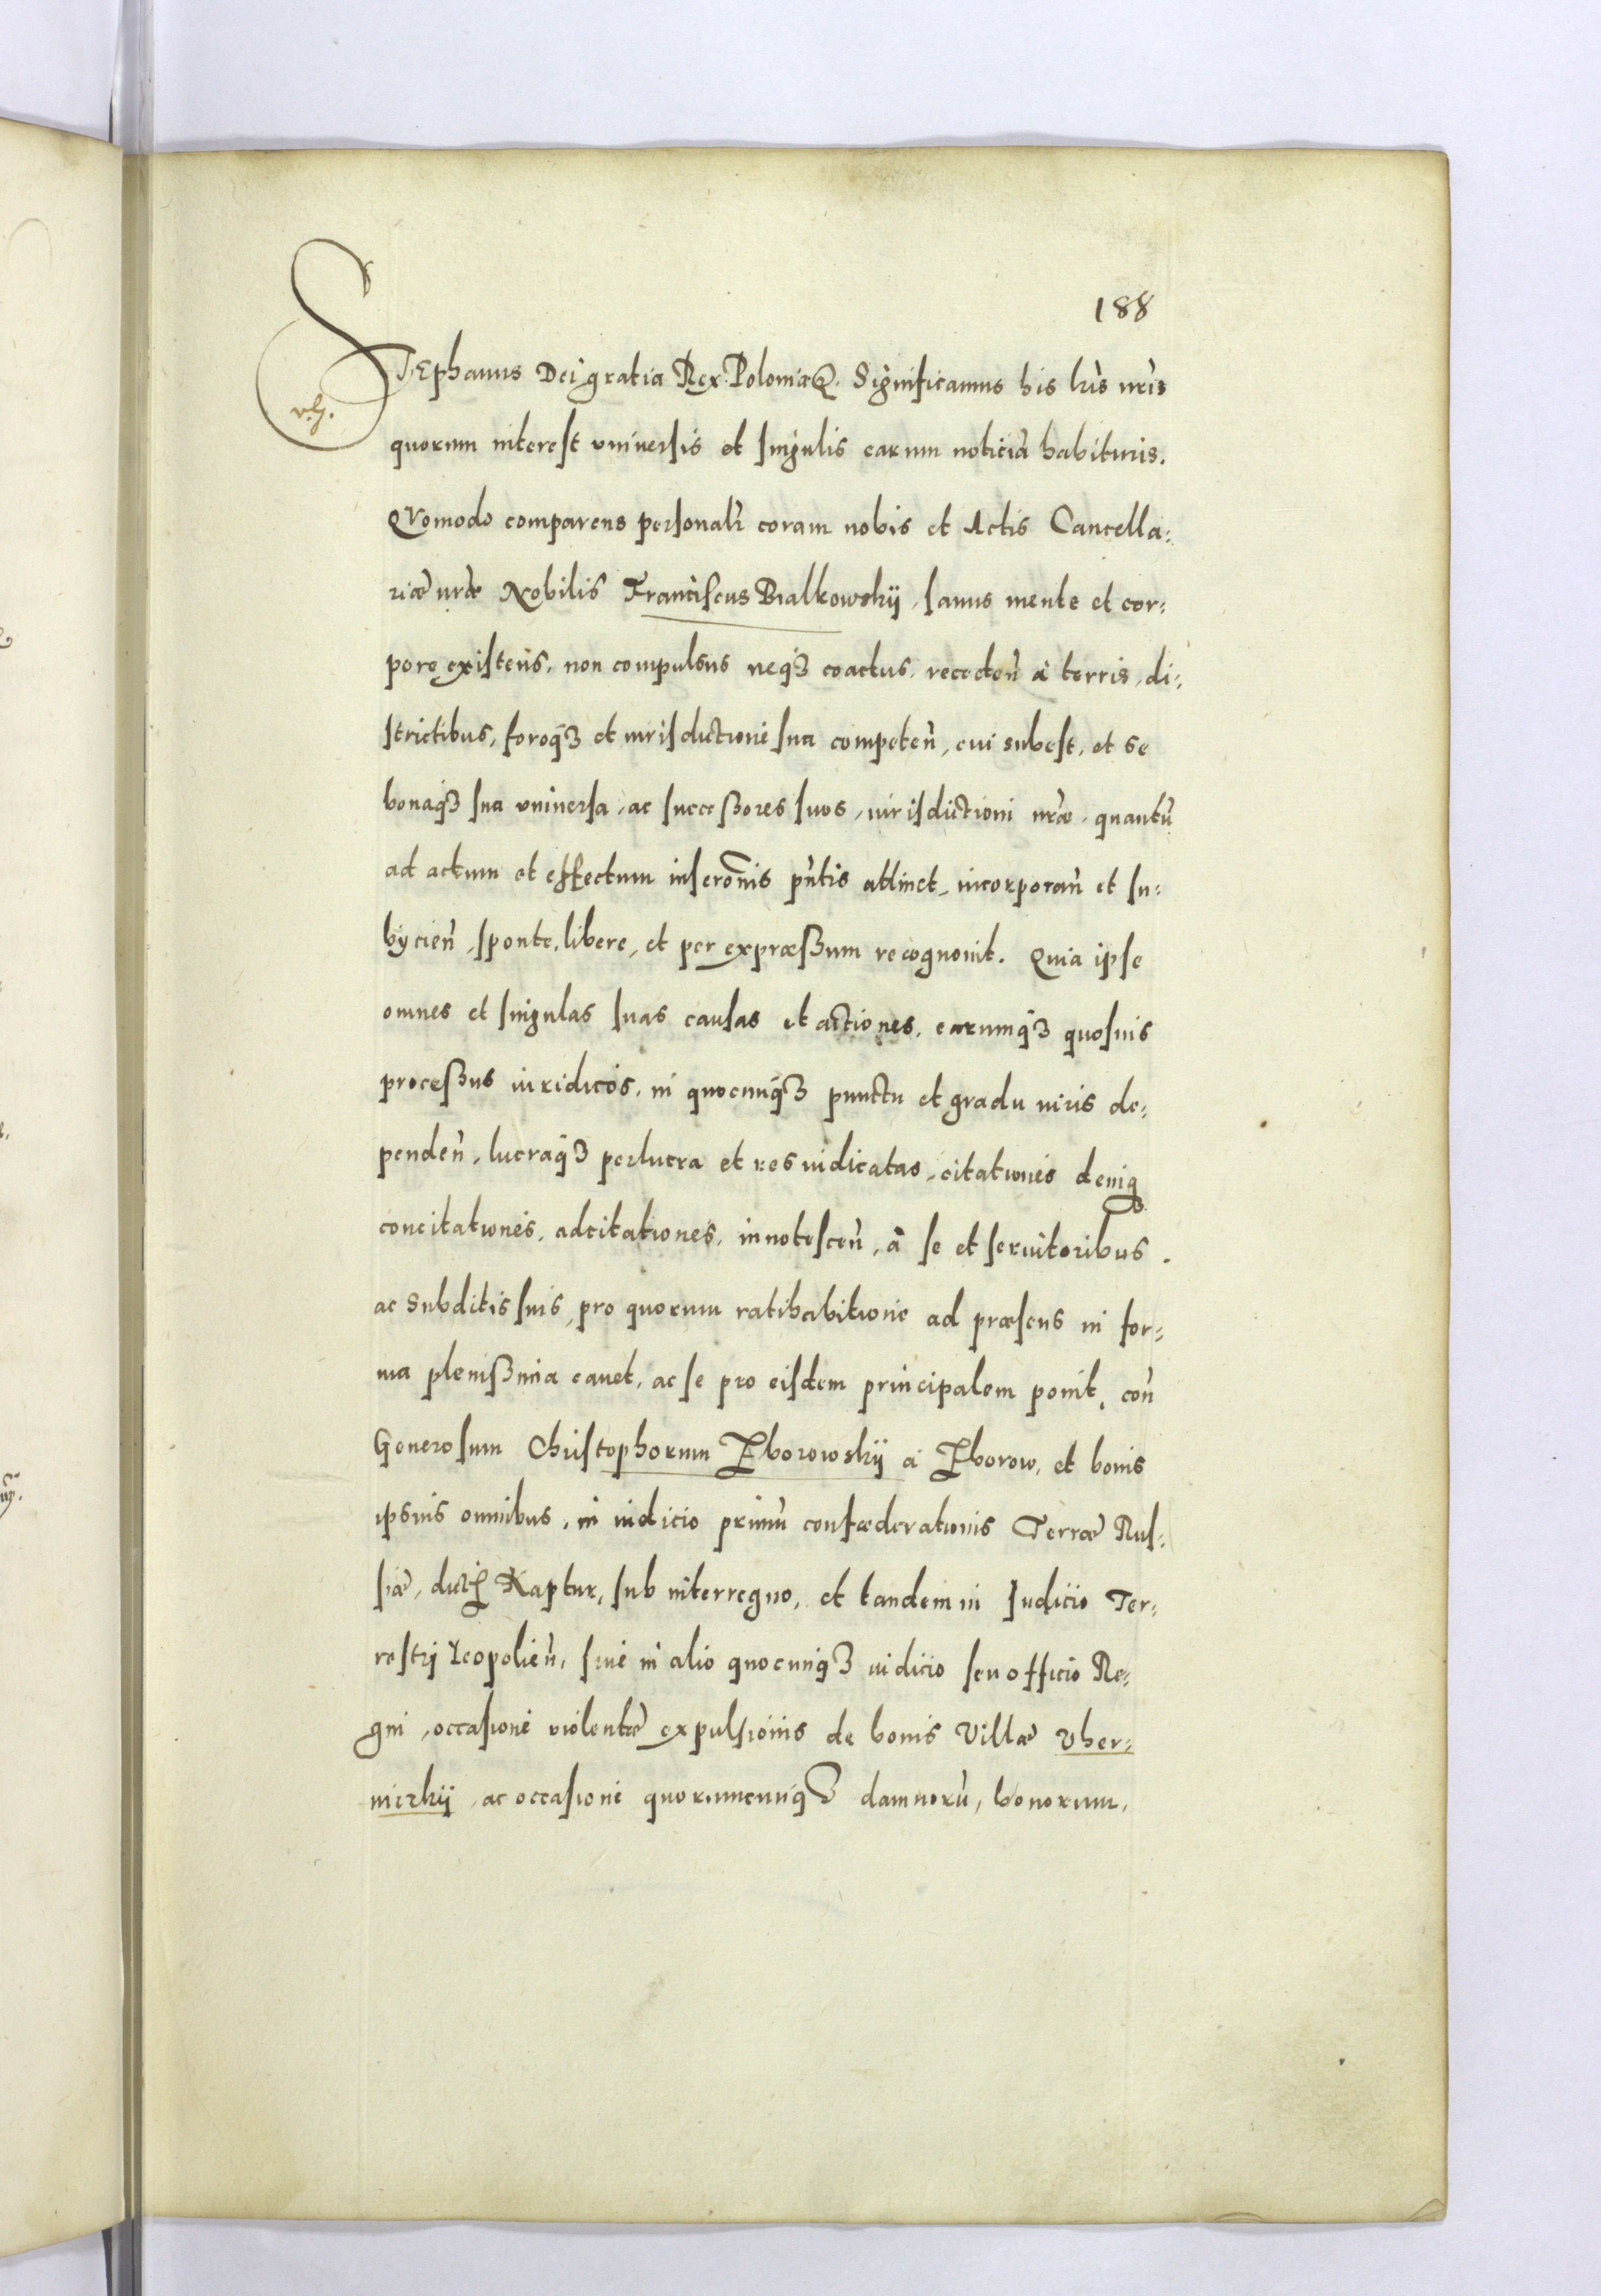 188
STEphanus Dei gratia Rex Poloniæ &. Significamus his lr̃is nr̃is
quorum interest vniuersis et singulis earum noticiã habituris.
Quomodo comparens personalr̃ coram nobis et Actis Cancella:
riæ nr̃æ Nobilis Franciscus Bialkowskij, sanus mente et cor:
pore existens, non compulsus neq3 coactus, receden̄ à terris, di:
strictibus, foroq3 et iurisdictione sua competen̄, cui subest, et se
bonaq3 sua vniuersa, ac successores suos, iurisdictioni nr̃æ, quantũ
ad actum et effectum inscrõnis pñtis attinet, incorporan̄ et su:
bijcien̄, sponte, libere, et per expræssum recognouit. Quia ipse
omnes et singulas suas causas et actiones, earumq3 quosuis
processus iuridicos, in quocunq3 punctu et gradu iuris de:
penden̄, lucraq3 perlucra et res iudicatas, citationes deniq3
concitationes, adcitationes, innotescen̄, à se et seruitoribus
ac subditis suis, pro quorum ratihabitione ad præsens in for:
ma plenissima cauet, ac se pro eisdem principalem ponit, con̄
Generosum Christophorum Zborowskij à Zborow, et bonis
ipsius omnibus, in iudicio primũ confœderationis Terræ Rus:
siæ, dict Kaptur, sub interregno, et tandem in Iudicio Ter:
restrj Leopolien̄, siue in alio quocunq3 iudicio seu officio Re:
gni, occasione violentæ expulsionis de bonis Villæ Vher:
nickij, ac occasione quorumcunq3 damnorũ, bonorum,